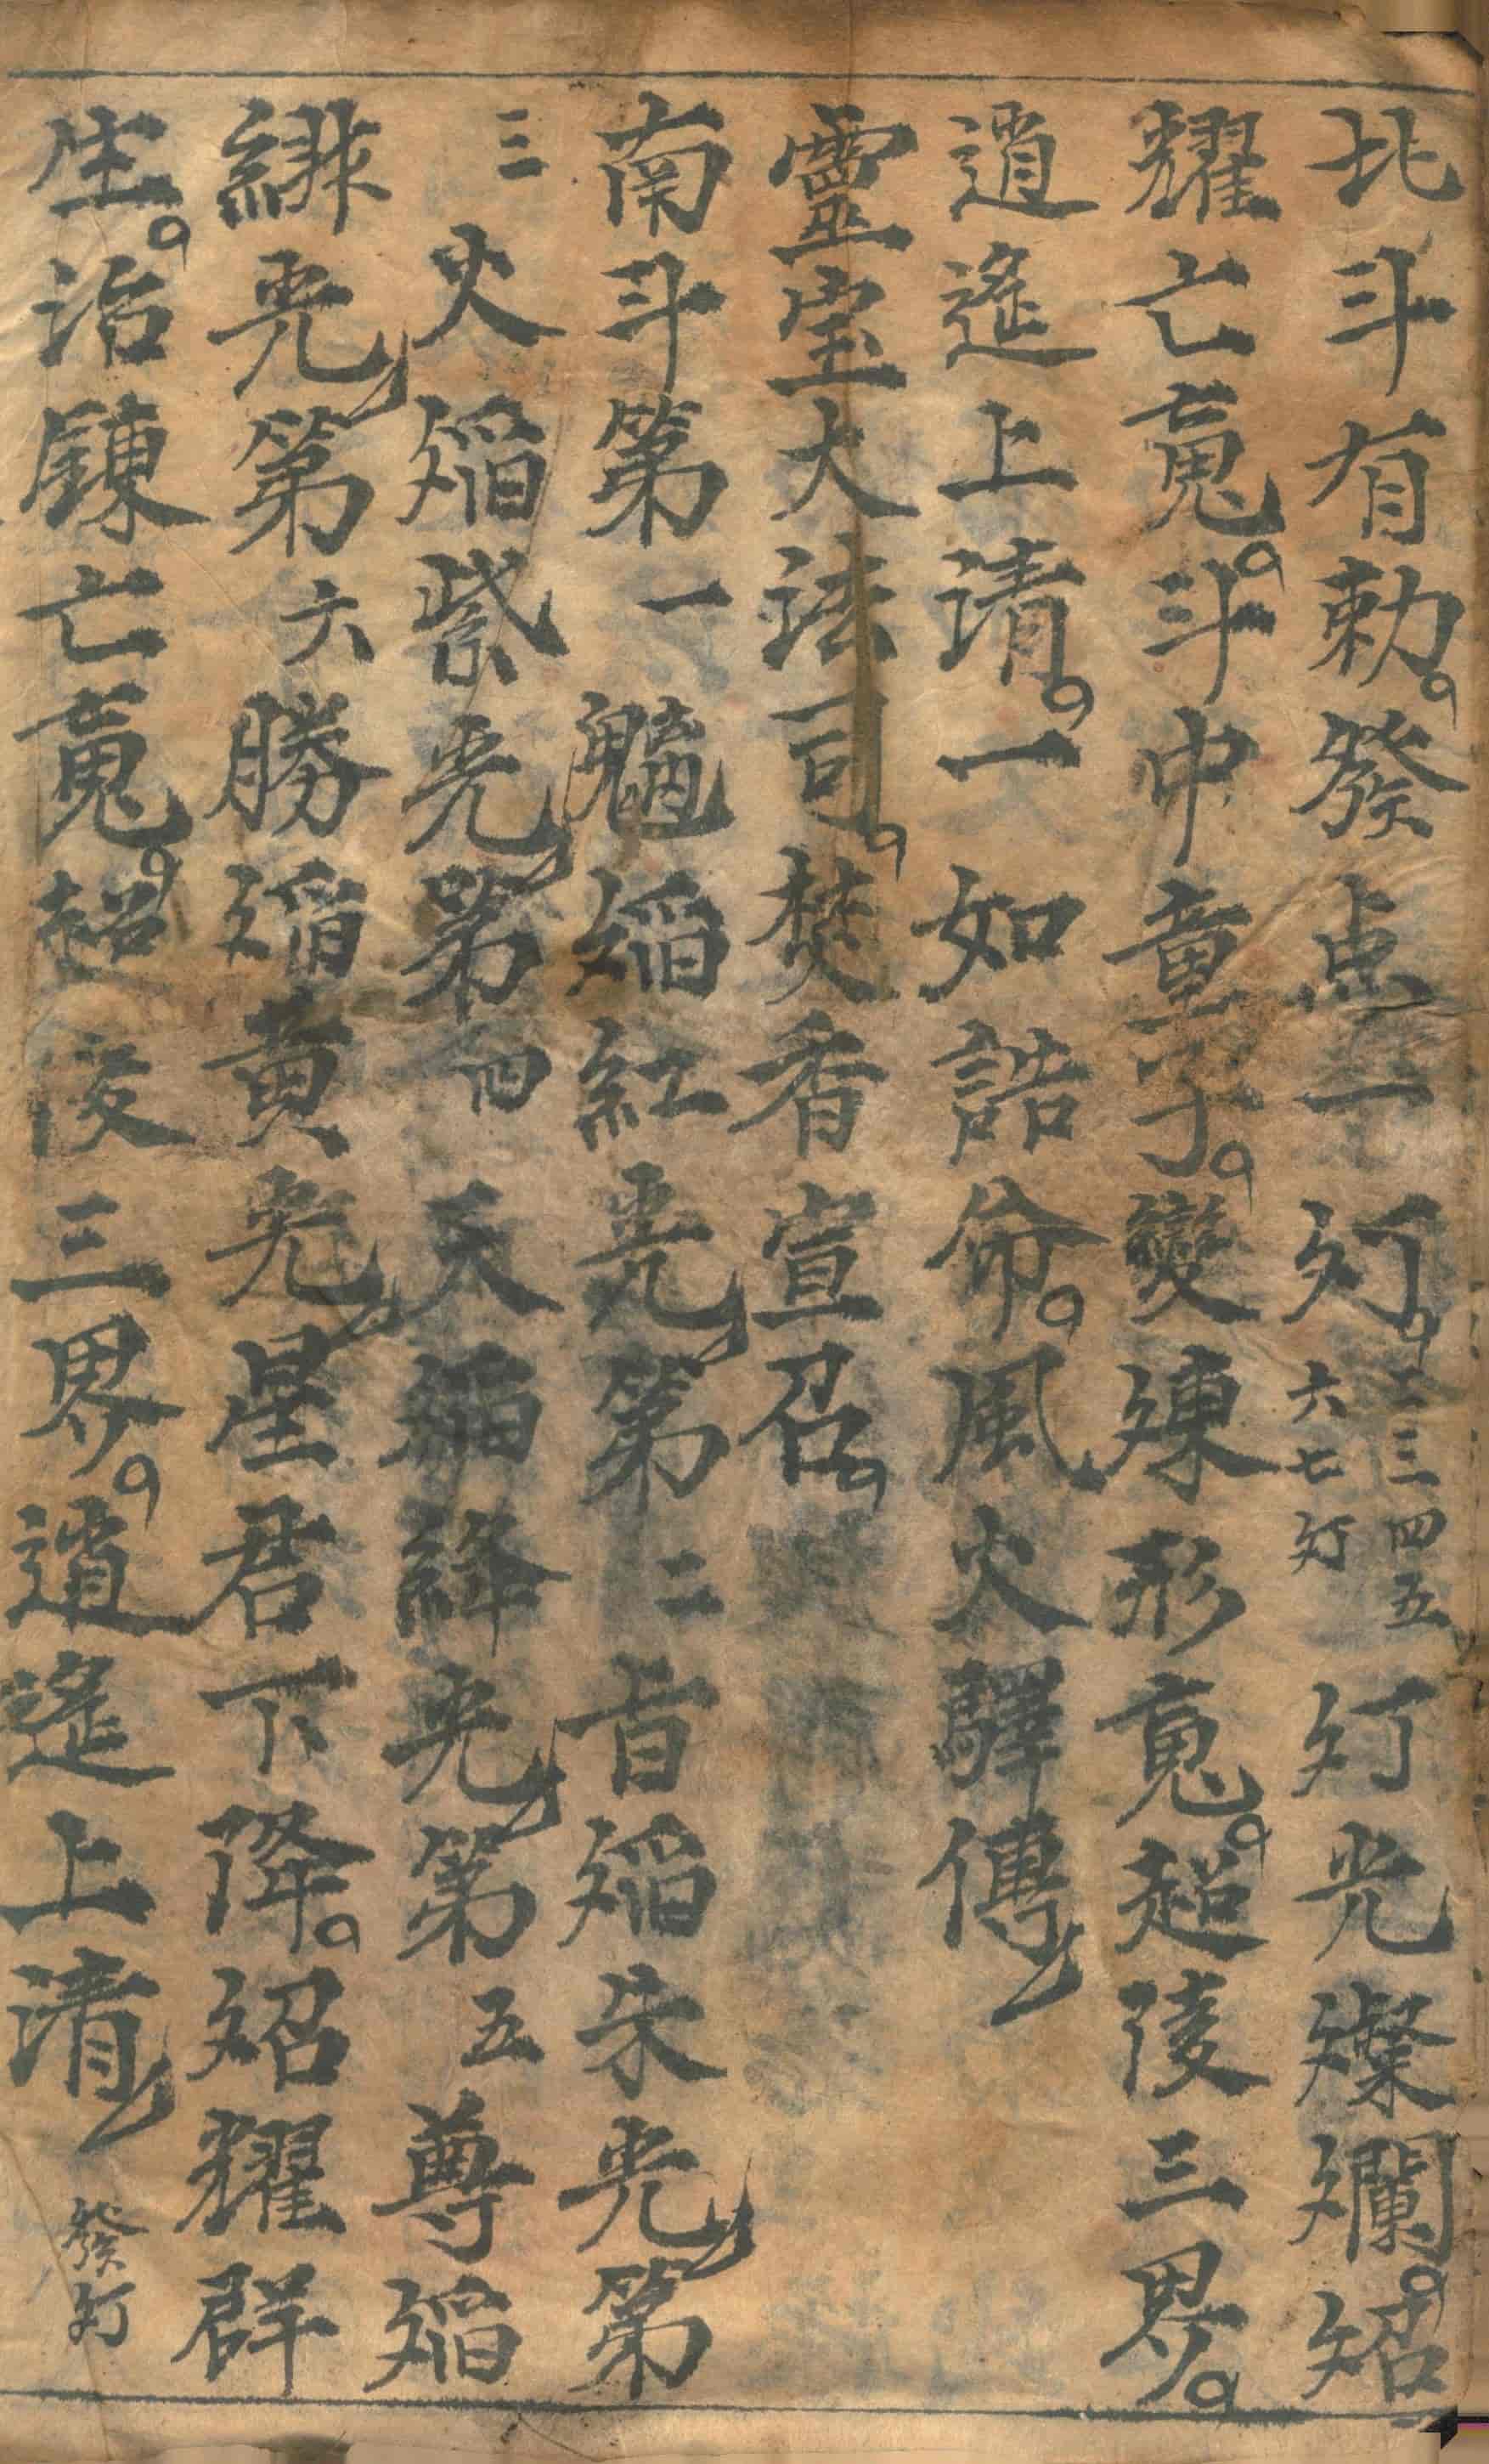 北斗有勅。發点一灯。二三四五六七灯灯光燦爛。炤
耀亡䰟。斗中童子。變煉形䰟。超陵三界。
逍遙上清。一如誥命。風火驛傳
靈宝大法司。焚香宣召。
南斗第一魒熖紅光第二㫖熖朱光第
三火熖紫光第四天熖絳光第五尊熖
緋光第六勝熖黄光星君下降。炤耀群
生。治鍊亡䰟。超凌三界。逍遙上清發灯